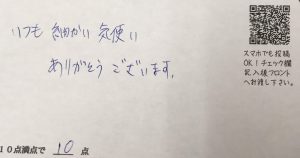 いつも 細かい 気使い
ありがとう ございます。
スマホでも投稿
OK！チェック欄
記入後フロント
へお渡し下さい。
10点満点で 10 点